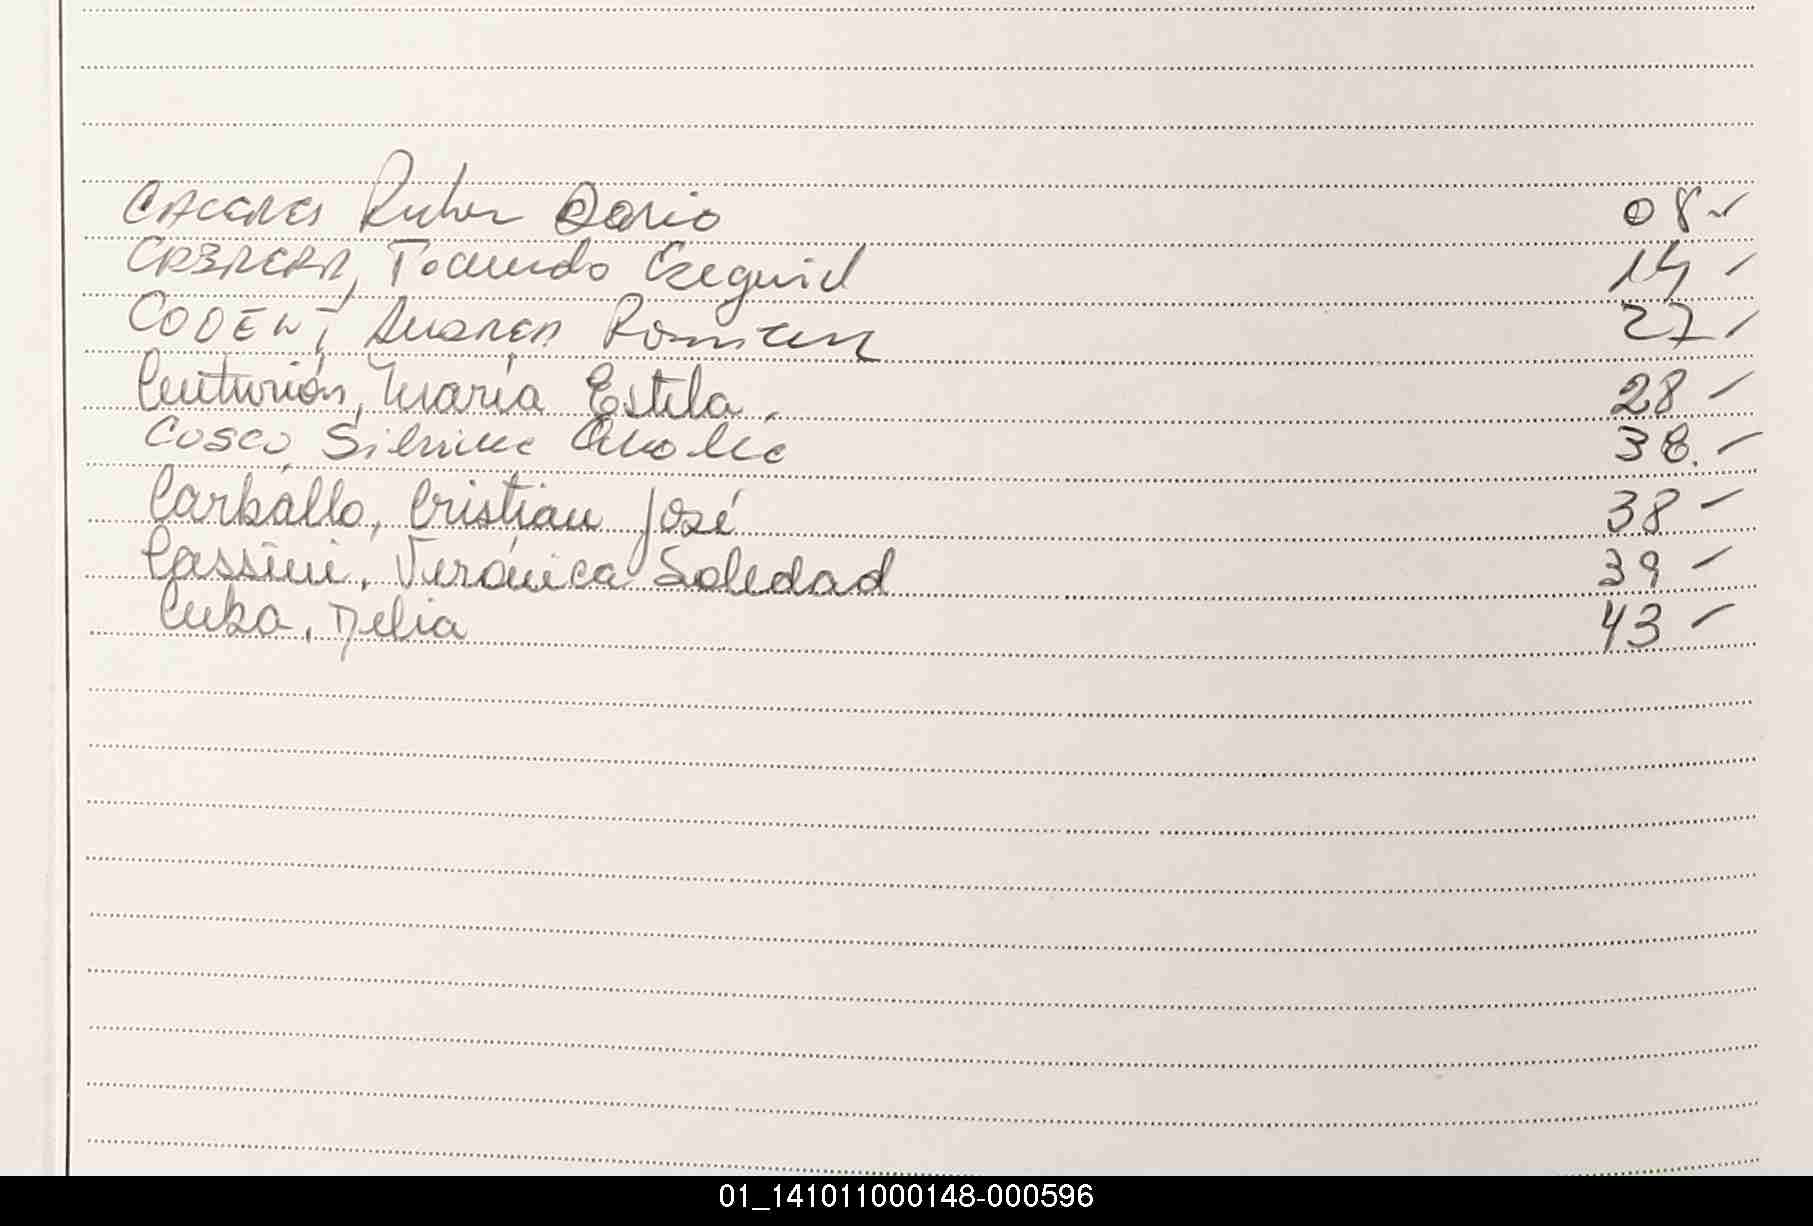 CACERES Ruben Dario 08
CABRERA, Facundo Ezequiel 14
CODENI, Andrea Romina 27
Centurión, María Estela. 28
Cusco, Silvina Analía 38.
Carballo, Cristian José 38
Cassini, Verónica Soledad 39
Cuba, Delia 43
01_141011000148-000596